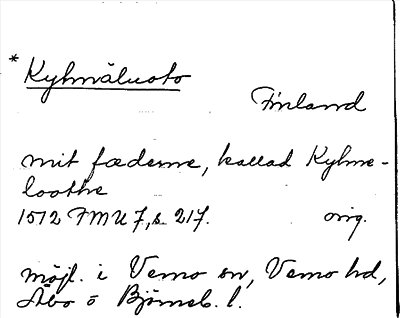 * Kylmäluoto
Finland
mit fæderne, kallad Kylme-
loothe
1512 FMU 7, s. 217. orig.
möjl. i Vemo sn, Vemo hd,
Åbo o Björneb. l.